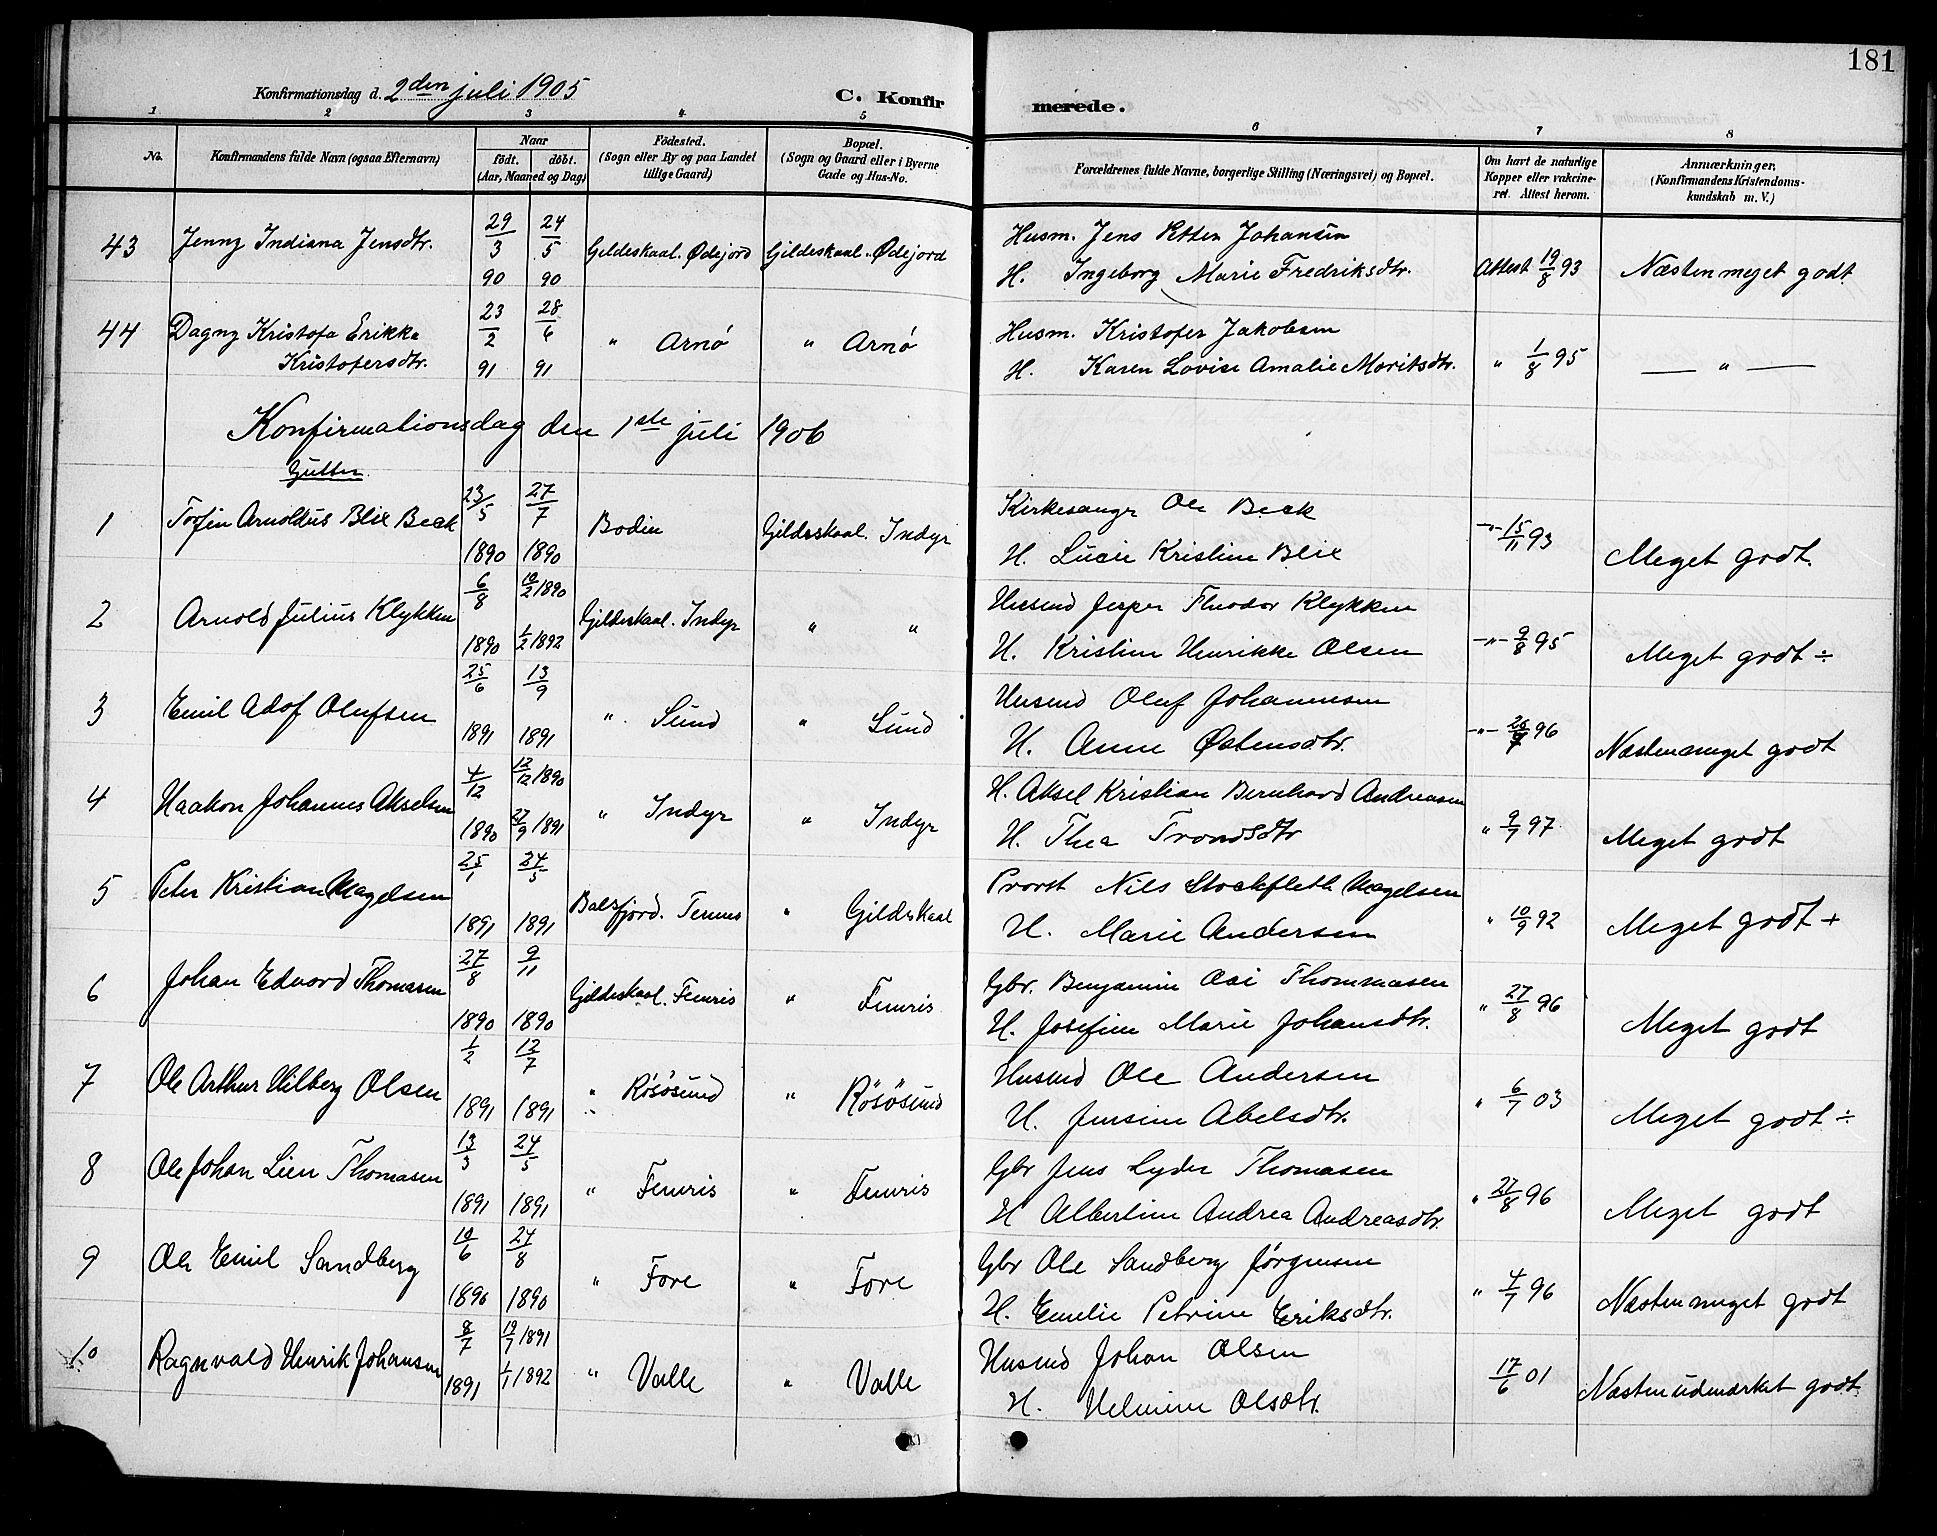 181
Konfirmationsdag d. 2den juli 1905
C. Konfirmerede.
1 2 3 4 5 6 7 8
No. Konfirmandens fulde Navn (ogsaa Efternavn) Naar født. døbt. (Aar, Maaned og Dag) Fødested. (Sogn eller By og paa Landet tillige Gaard) Bopæl. (Sogn og Gaard eller i Byerne Gade og Hus-No. Forældrenes fulde Navne, borgerlige Stilling (Næringsvei) og Bopæl. Om havt de naturlige Kopper eller vakcineret. Attest herom. Anmærkninger, (Konfirmandens Kristendomskundskab m. V.)
43 Jenny Indiana Jensdtr. 29/3 90 24/5 90 Gildeskaal. Ødejord Gildeskaal. Ødejord Husm. Jens Petter Johansen
H. Ingeborg Marie Fredriksdtr. Attest 19/8 93 Næsten meget godt
44 Dagny Kristofa Erikka
Kristofersdtr. 23/2 91 28/6 91 " Arnø " Arnø Husm. Kristofer Jakobsen
H. Karen Lovise Amalie Moritsdtr. " 1/8 95 — " —
Konfirmationsdag den 1ste juli 1906
Gutter
1 Torfin Arnoldus Blix Beck 23/5 1890 27/7 1890 Bodin Gildeskaal. Indyr Kirkesanger Ole Beck
H. Lucie Kristine Blix -"- 15/11 93 Meget godt.
2 Arnold Julius Klykken 6/8 1890 10/2 1890 1/2 1892 Gildeskaal. Indyr " " Husmd Jesper Theodor Klykken
H. Kristine Henrikke Olsen -"- 9/8 95 Meget godt ÷
3 Emil Adof Olufsen 25/6 1891 13/9 1891 " Sund " Sund Husmd Oluf Johannesen
H. Anne Østensdtr. -"- 96 Næsten meget godt
4 Haakon Johannes Akselsen 4/12 1890 12/12 1890 27/9 1891 " Indyr " Indyr H. Aksel Kristian Bernhard Andreasen
H. Thea Trondsdtr " 9/7 97 Meget godt
5 Peter Kristian Nagelsen 25/1 1891 24/5 1891 Balsfjord. Tennes " Gildeskaal Provst Nils Stockfleth Nagelsen
H. Marie Andersen " 10/9 92 Meget godt +
6 Johan Edvard Thomasen 27/8 1890 9/11 1890 Gildeskaal. Fenris " Fenris Gbr. Benjamin Thommasen
H. Josefine Marie Johansdtr. " 27/8 96 Meget godt
7 Ole Arthur Hilberg Olsen 1/2 1891 12/7 1891 " Røsøsund " Røsøsund Husmd Ole Andersen
H. Jensine Abelsdtr. " 6/7 03 Meget godt ÷
8 Ole Johan Lien Thomasen 13/3 1891 24/5 1891 " Fenris " Fenris Gbr Jens Lyder Thomasen
H Albertine Andrea Andreasdtr. " 27/8 96 Meget godt
9 Ole Emil Sandberg 10/6 1890 24/8 1890 " Fore " Fore Gbr Ole Sandberg Jørgensen
H. Emelie Petrine Eriksdtr. " 4/7 96 Næsten meget godt
10 Ragnvald Henrik Johansen 8/7 1891 19/7 1891 1/1 1892 " Valle " Valle Husmd Johan Olsen
H. Helmine Olsdtr. 17/6 01 Næsten udmerket godt.